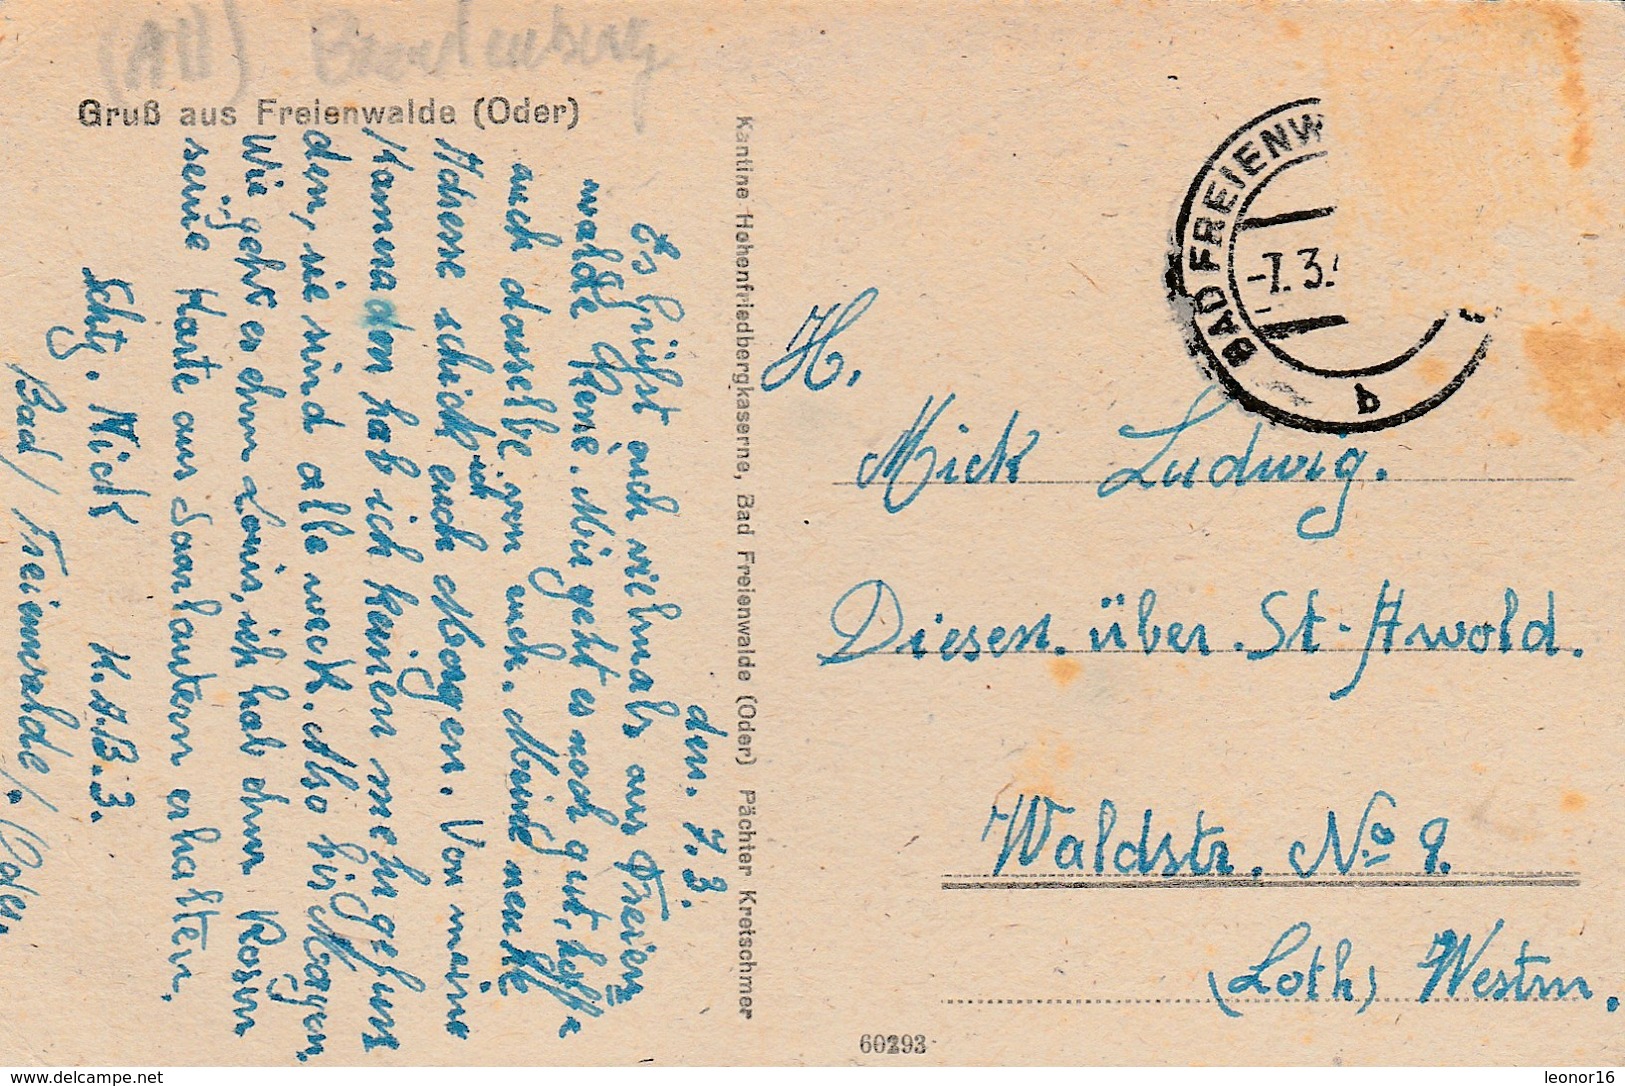 (All) Brandenburg
Gruß aus Freienwalde (Oder)
den. 7.3.
Es grüßt euch vielmals aus Freien
walde René. Mir geht es noch gut, hoffe
auch dasselbe von euch. Meine neue
Adresse schick ich euch Morgen. Von meine
Kameraden hab ich keinen mehr gefun
den, sie sind alle weck. Also bis Morgen.
Wie geht es ehm Louis, ich hab ehm
seine Karte aus Saarlautern erhalten.
Schtz. Nick K.d.B.3.
Bad / Freienwalde /. Oder.
Kantine Hohenfriedbergkaserne, Bad Freienwalde (Oder) Pächter Kretschmer
BAD FREIENW
-7.3.
b
H.
Mick Ludwig.
Diesen. über. St-Awold.
Waldstr. No 9.
(Loth) Westm.
60293
https://www.delcampe.net
leonor16